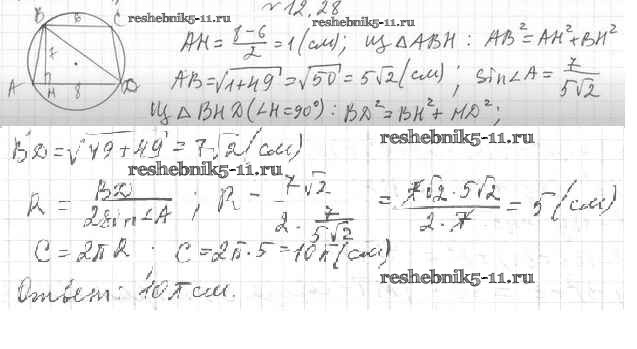 № 12.28
reshebnik5-11.ru reshebnik5-11.ru
B 6 C
7
A H 8 D
AH = \frac{8-6}{2} = 1 (см); Из △ABH: AB² = AH² + BH²
AB = √(1+49) = √50 = 5√2 (см); sin∠A = \frac{7}{5√2}
Из △BHD (∠H = 90°): BD² = BH² + HD²;
reshebnik5-11.ru
BD = √(49+49) = 7√2 (см)
reshebnik5-11.ru
R = \frac{BD}{2sin∠A}; R = \frac{7√2}{2·\frac{7}{5√2}} = \frac{7√2·5√2}{2·7} = 5 (см)
C = 2πR. C = 2π·5 = 10π (см)
reshebnik5-11.ru
Ответ: 10π см.